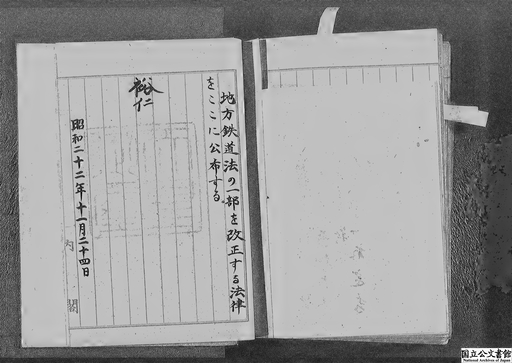 地方鉄道法の一部を改正する法律
をここに公布する
裕仁
昭和二十二年十一月二十四日
内閣
国立公文書館
National Archives of Japan